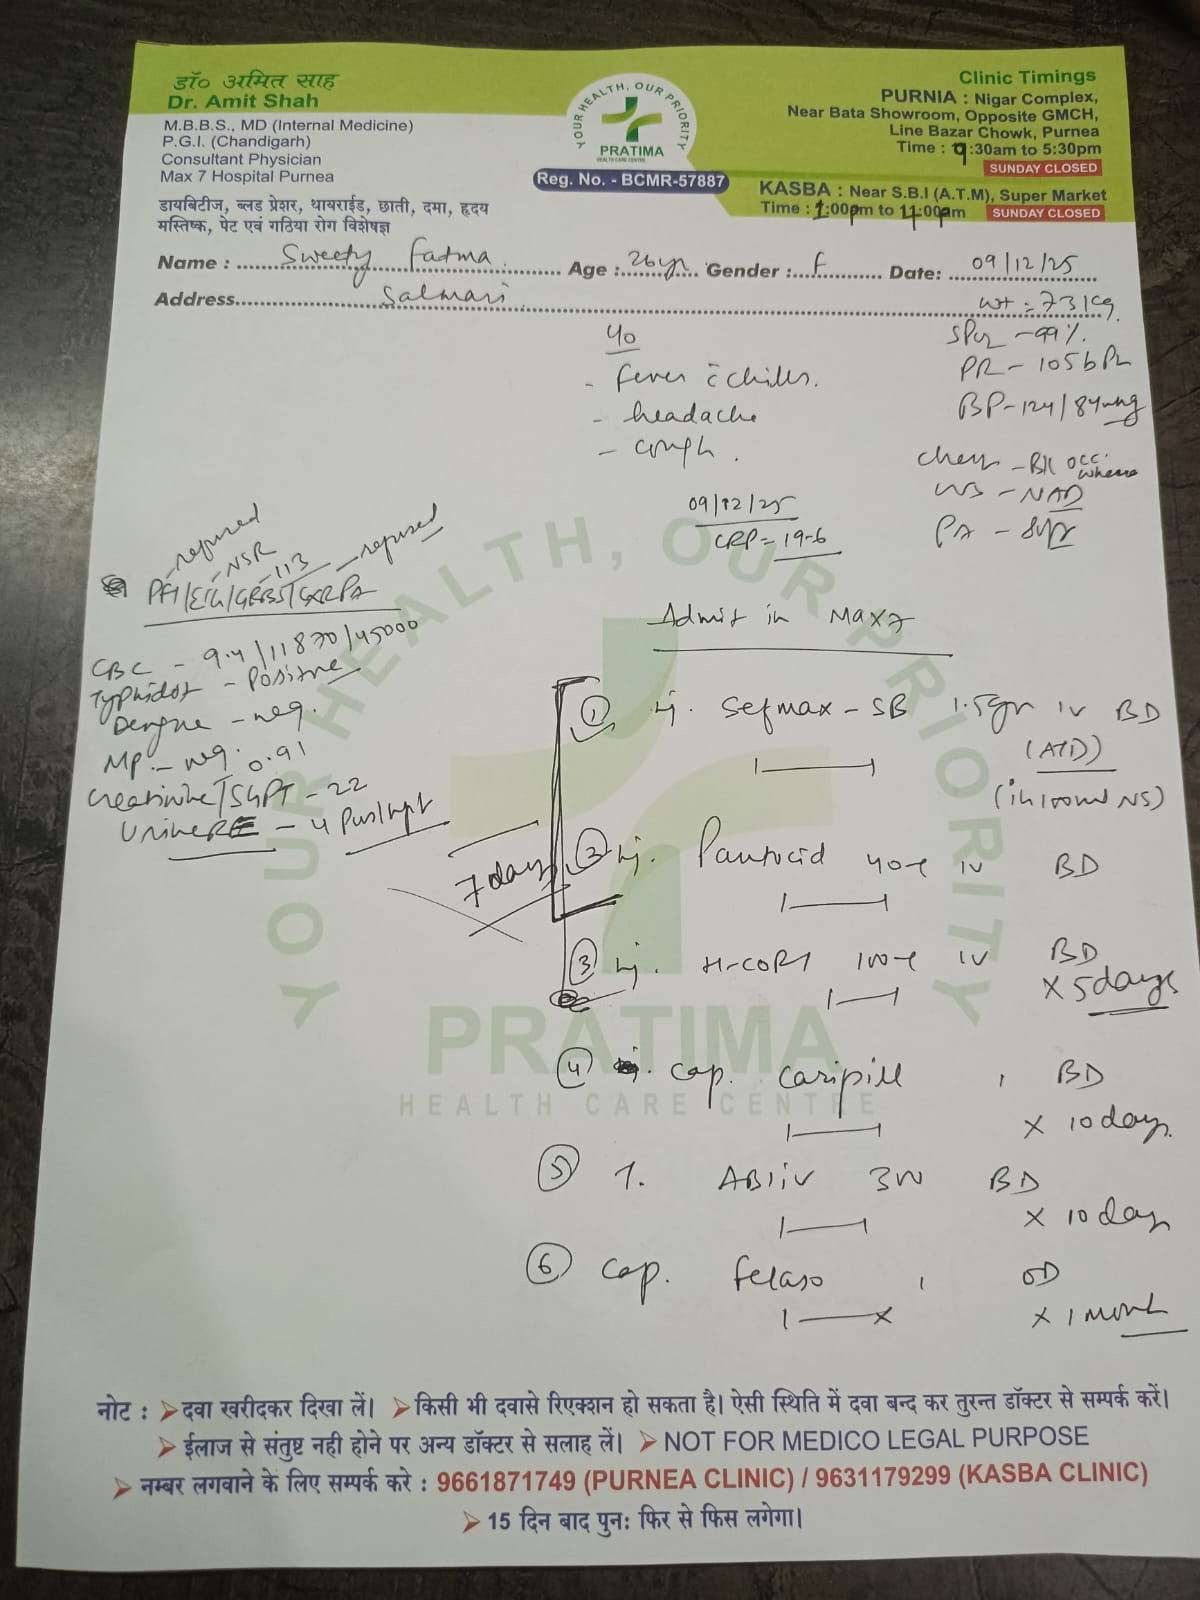 डॉ० अमित साह
Dr. Amit Shah
M.B.B.S., MD (Internal Medicine)
P.G.I. (Chandigarh)
Consultant Physician
Max 7 Hospital Purnea
डायबिटीज, ब्लड प्रेशर, थायराईड, छाती, दमा, हृदय
मस्तिष्क, पेट एवं गठिया रोग विशेषज्ञ
YOUR HEALTH, OUR PRIORITY
PRATIMA
HEALTH CARE CENTRE
Reg. No. - BCMR-57887
Clinic Timings
PURNIA : Nigar Complex,
Near Bata Showroom, Opposite GMCH,
Line Bazar Chowk, Purnea
Time : 9:30am to 5:30pm
SUNDAY CLOSED
KASBA : Near S.B.I (A.T.M), Super Market
Time : :00pm to 11:00am SUNDAY CLOSED
Name : Sweety Fatma Age : 26yr Gender : F Date: 09/12/25
Address Salmari
wt = 73 kg
SPO2 - 99%
PR - 105 bpm
BP - 124/84 mmHg
Chest - B/L occ. wheeze
- NAD
PA - Soft
- fever c̄ chills.
- headache
- cough.
09/12/25
CRP = 19.6
- refused
- NSR
- 113
- refused
CBC - 9.4/11870/45000
Typhidot - Positive
Dengue - neg.
MP - neg.
Creatinine/SGPT - 0.91 22
Urine RE - 4 Pus/hpf
Admit in Max 7
① Inj. Sefmax-SB 1.5gm IV BD
(ATD)
(in 100ml NS)
7 days
② Inj. Pantocid 40 IV BD
③ Inj. H-CORT 100 IV BD
X 5 days
④ Cap. Caripill 1 BD
X 10 days
⑤ T. ABliv 300 BD
X 10 day
⑥ Cap. Felaso 1 OD
X 1 month
YOUR HEALTH, OUR PRIORITY
PRATIMA
HEALTH CARE CENTRE
नोट : ➤दवा खरीदकर दिखा लें। ➤किसी भी दवासे रिएक्शन हो सकता है। ऐसी स्थिति में दवा बन्द कर तुरन्त डॉक्टर से सम्पर्क करें।
➤ ईलाज से संतुष्ट नही होने पर अन्य डॉक्टर से सलाह लें। ➤ NOT FOR MEDICO LEGAL PURPOSE
➤ नम्बर लगवाने के लिए सम्पर्क करे : 9661871749 (PURNEA CLINIC) / 9631179299 (KASBA CLINIC)
➤ 15 दिन बाद पुनः फिर से फिस लगेगा।